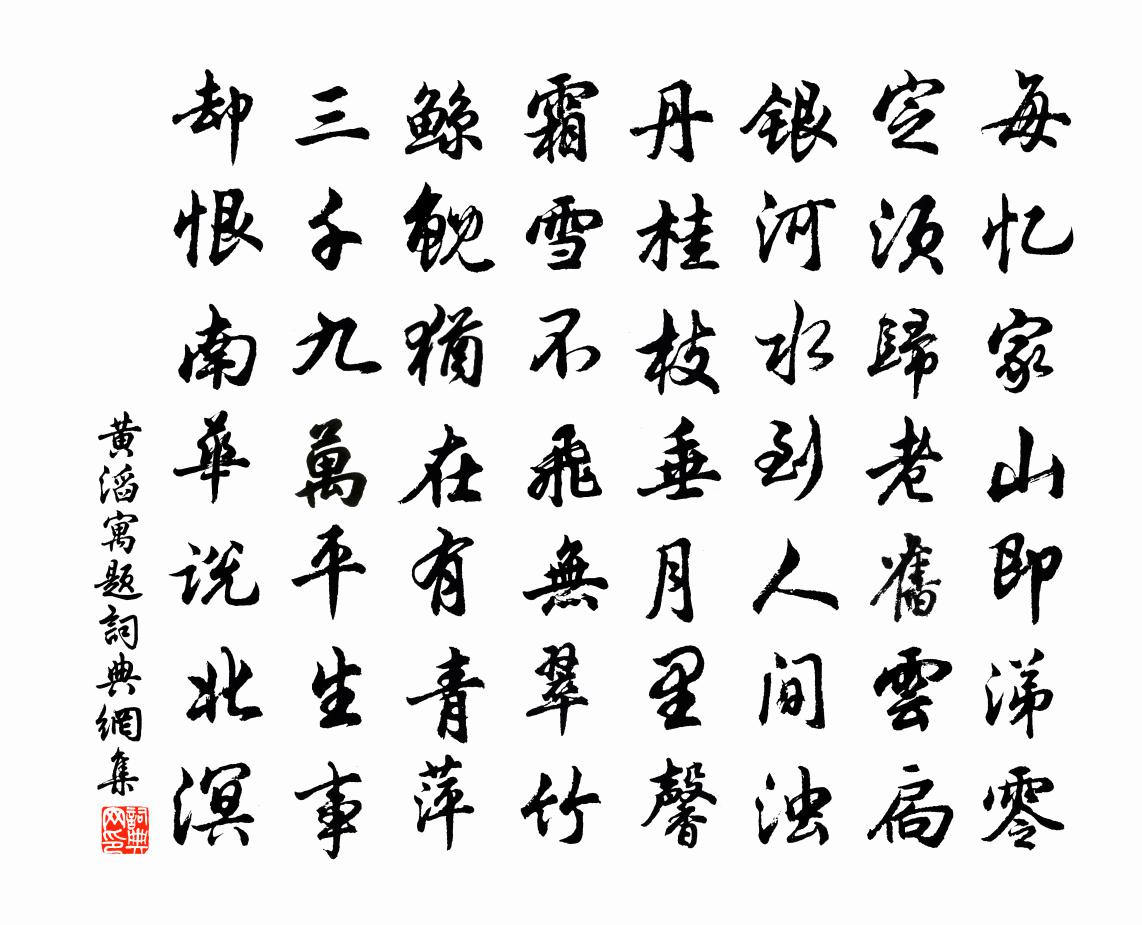 每忆家山即涕零
定须歸老舊雲扃
銀河水到人间浊
丹桂枝垂月里馨
霜雪不飛無翠竹
鲸鲵猶在有青萍
三千九萬平生事
却恨南華说北溟
黄滔寓题詞典網集
詞典网印